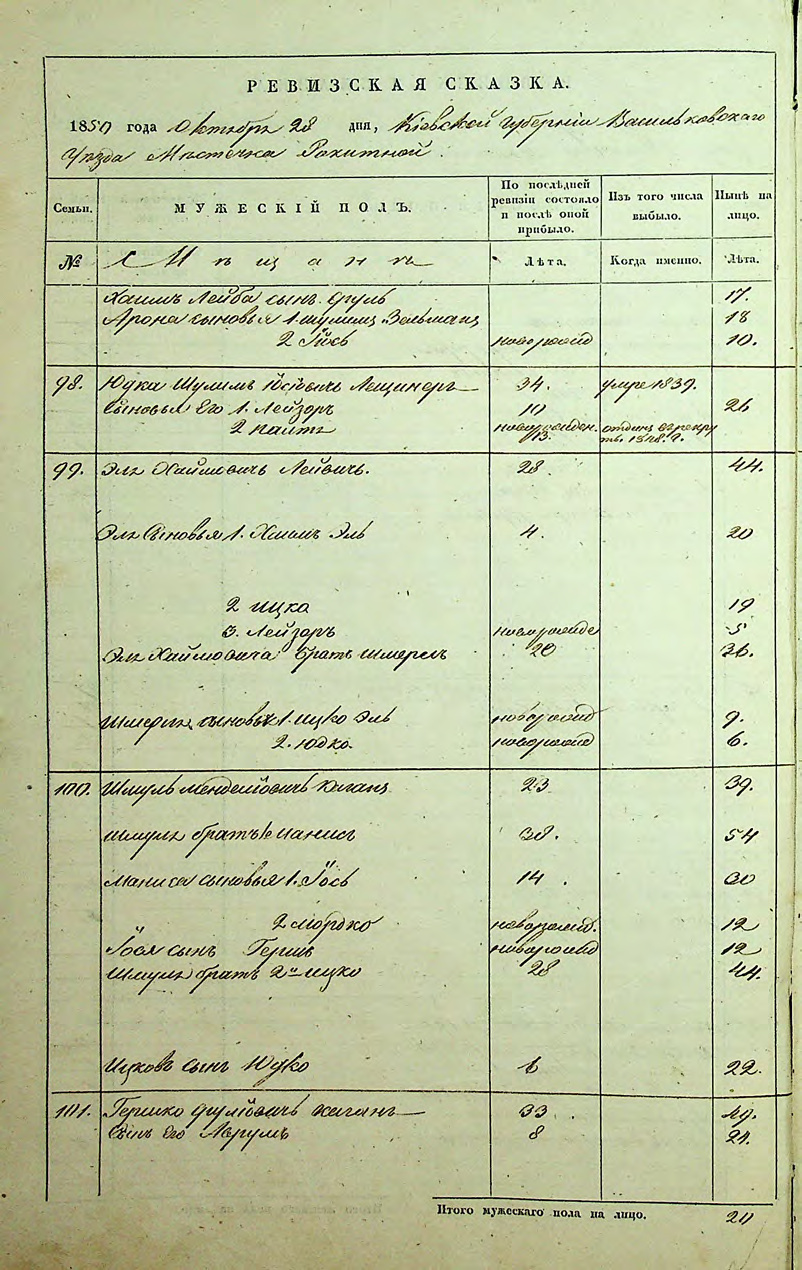 РЕВИЗСКАЯ СКАЗКА.
1850 года Октября 28 дня, Кіевской Губерніи Васильковскаго
Уѣзда Мѣстечка Рокитной.
Семьи. МУЖЕСКІЙ ПОЛЪ. По послѣдней ревизіи состояло и послѣ оной прибыло. Изъ того числа выбыло. Нынѣ на лицо.
№ Мѣщанъ Лѣта. Когда именно. Лѣта.
Хаимъ Лейба сынъ 17.
Арона сыновья 1. Шулимъ Зельманъ 18
2 Іось новорожд 10.
98. Юдка Шулимъ Іосіовичъ Лещинеръ 34. умре 1839.
Сыновья Его 1. Лейзоръ 10 26
2 новорожден. 13. отданъ въ рекру
ты. 1848. г.
99. Эля Хаймовичъ Лейвичъ. 28. 44.
Эля Сыновья 1. Эль 4. 20
2 ицко 19
3. Лейзоръ новорожде 5
Эля Хаймовича братъ Шмерель 20 36.
Шмерля сыновья 1. ицко Эль новорожд 9.
2. Юдко. новорожд 6.
100. Шмуль Менделіовичъ 23 39.
Шмуля братъ 1й Манись 38. 54
Маниса сыновья 1. Іось 14. 30
2 Мордко новорожд. 12
Іося сынъ Герш новорожд 12
Шмуля братъ 2й ицко 28 44.
Ицковъ сынъ Юдко 6 22.
101. Гершко Каганъ 33. 49.
Сынъ Его Аврумъ 8 24.
Итого мужескаго пола на лицо. 20